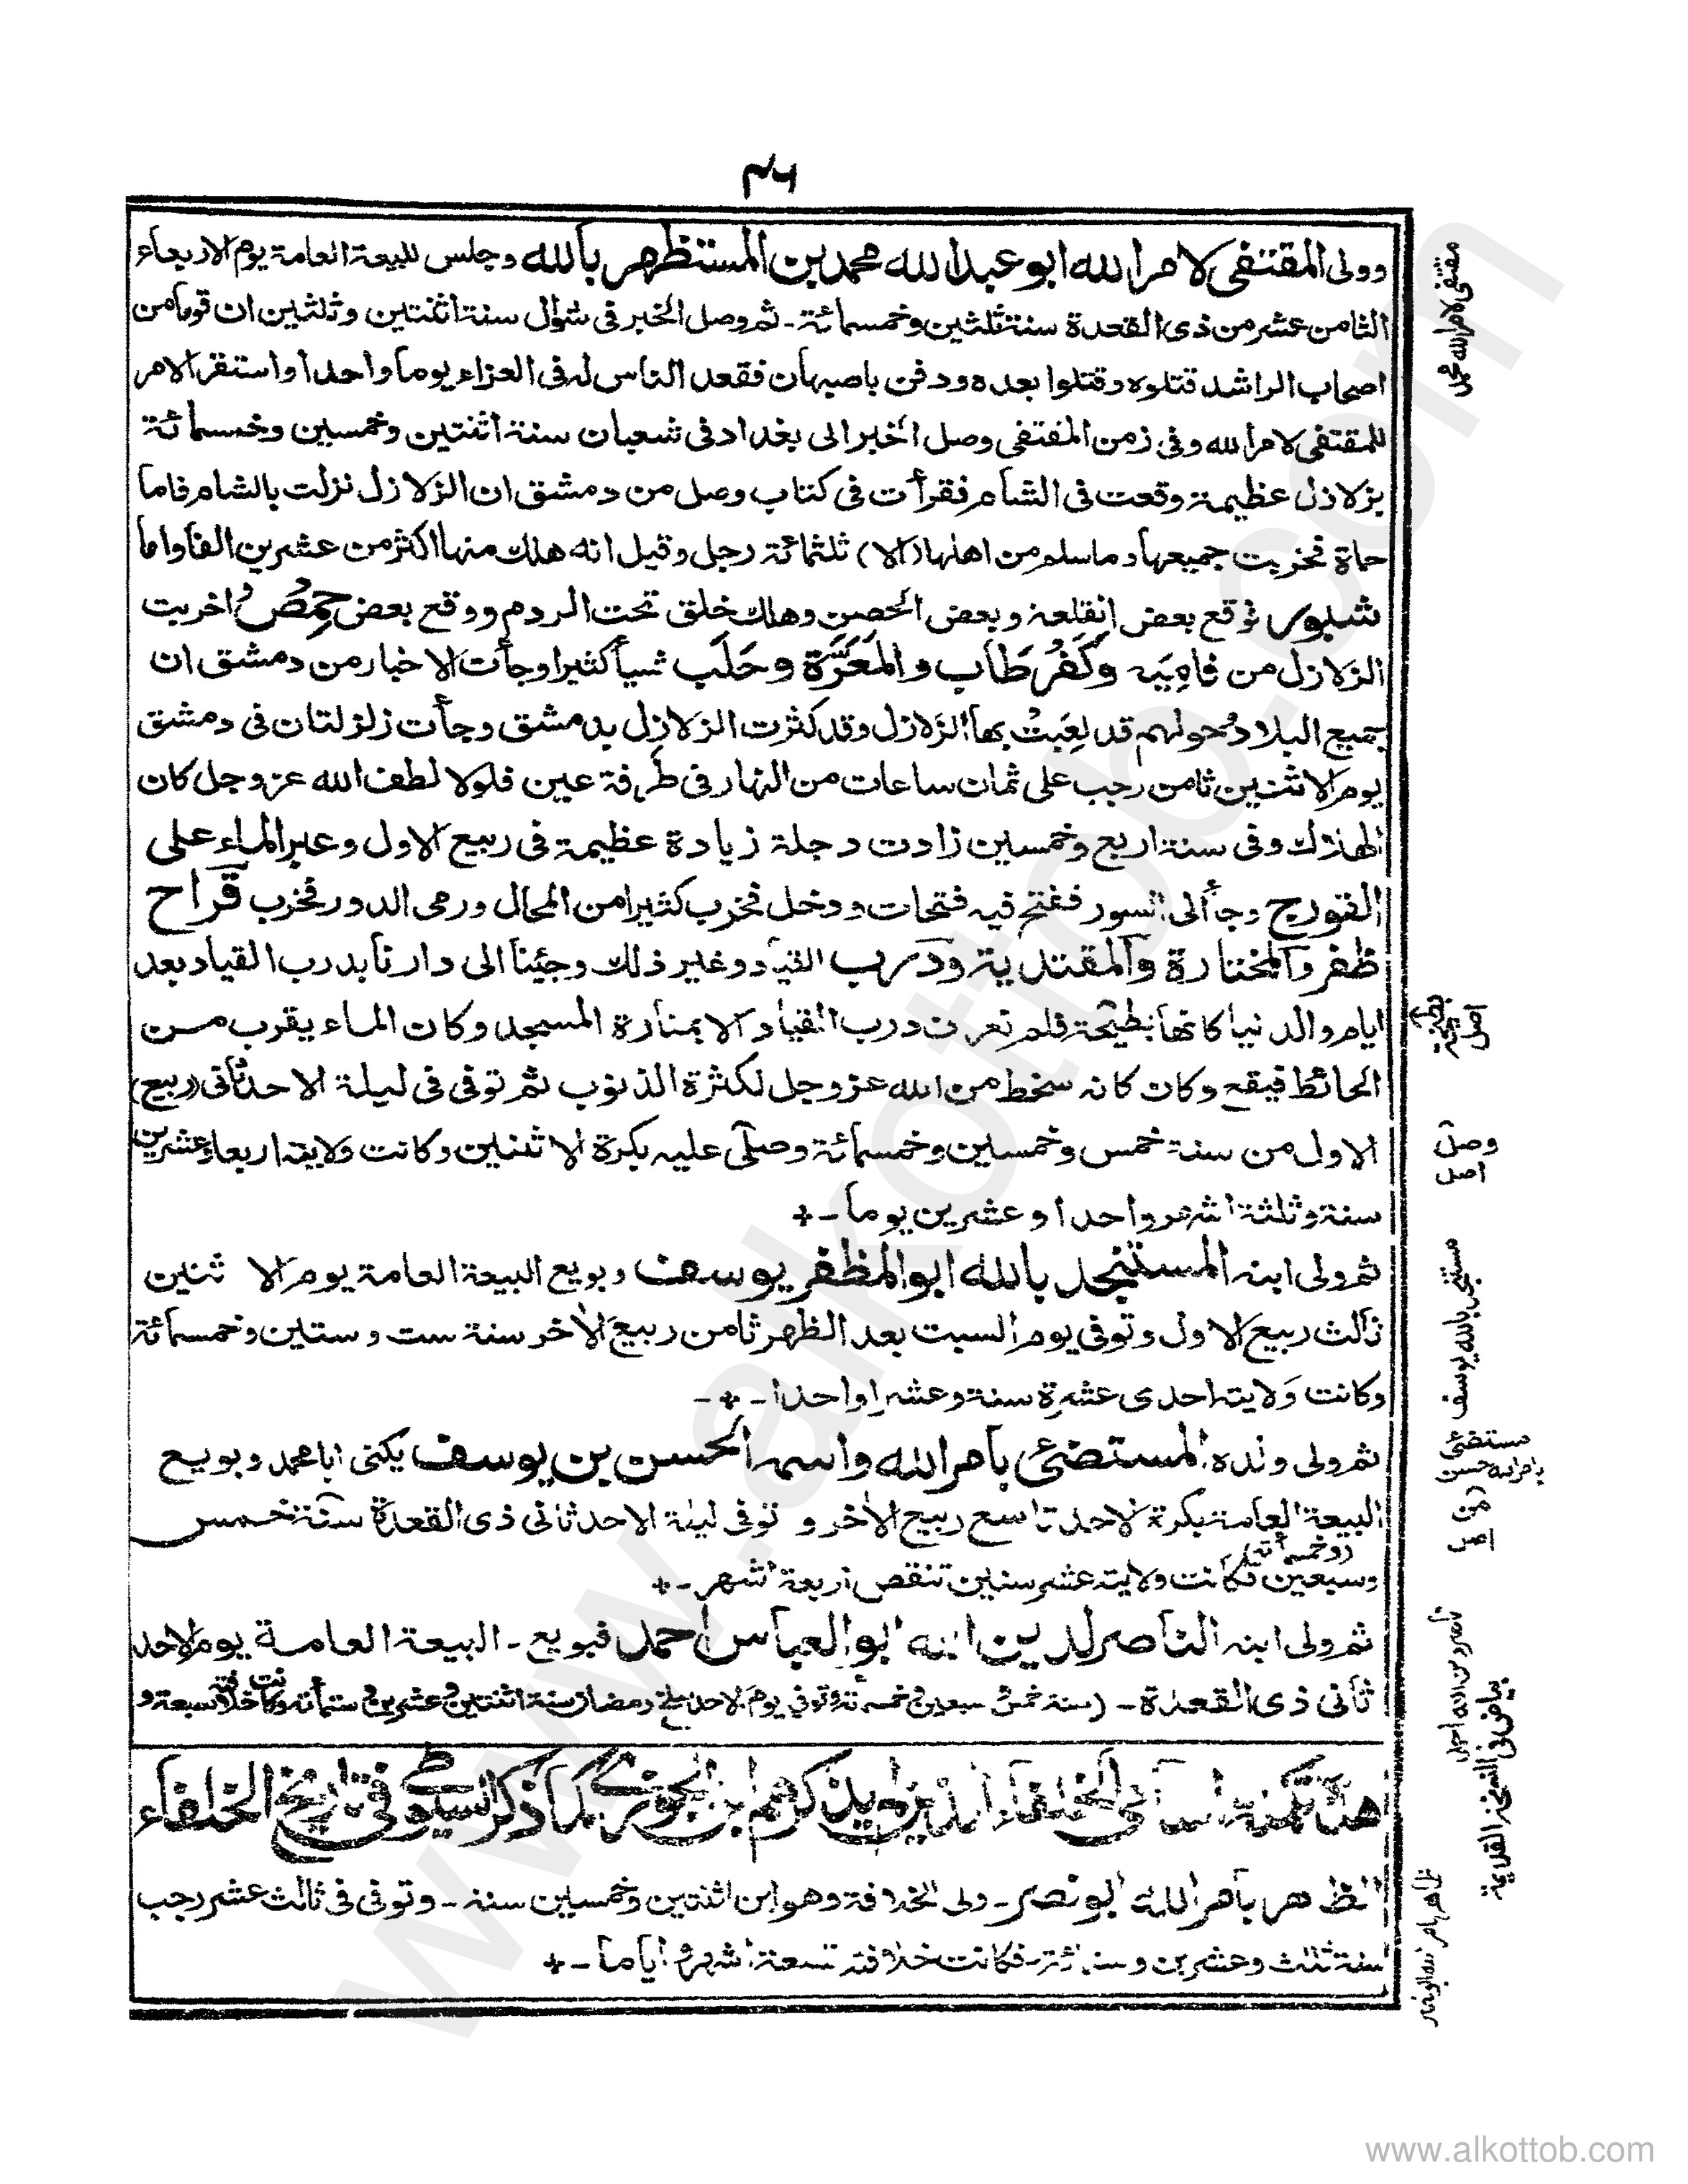 ٤٦
وولى المقتفى لامر الله ابو عبد الله محمد بن المستظهر بالله وجلس للبيعة العامة يوم الاربعاء
الثامن عشر من ذى القعدة سنة ثلثين وخمسمائة ـ ثم وصل الخبر فى شوال سنة اثنتين وثلثين ان قوما من
اصحاب الراشد قتلوه وقتلوا بعده ودفن باصبهان فقعد الناس له فى العزاء يوما واحدا واستقر الامر
للمقتفى لامر الله وفى زمن المقتفى وصل الخبر الى بغداد فى شعبان سنة اثنتين وخمسين وخمسمائة
بزلازل عظيمة وقعت فى الشام فقرأت فى كتاب وصل من دمشق ان الزلازل نزلت بالشام فاما
حماة فخربت جميعها وما سلم من اهلها (الا) ثلثمائة رجل وقيل انه هلك منها اكثر من عشرين الفا واما
وقع بعض القلعة وبعض الحصن وهلك خلق تحت الردم ووقع بعض حِمْص واخربت
الزلازل من فامِيَه وكَفْرطَاب والمَعَرَّة وحَلَب شيأ كثيرا وجأت الاخبار من دمشق ان
جميع البلاد وحولهم قد لعِبَتْ بها الزلازل وقد كثرت الزلازل بدمشق وجأت زلزلتان فى دمشق
يوم الاثنين ثامن رجب على ثمان ساعات من النهار فى طرفة عين فلولا لطف الله عز وجل كان
الهلاك وفى سنة اربع وخمسين زادت دجلة زيادة عظيمة فى ربيع الاول وعبر الماء على
القورج وجأ الى السور ففتح فيه فتحات ودخل فخرب كثيرا من المحال ورمى الدور فخرب قراح
ظفر والمختارة والمقتدية ودرب القيار وغير ذلك وجئنا الى دارنا بدرب القيار بعد
ايام والدنيا كانها بطيحة فلم نعرف درب القيار الا بمنارة المسجد وكان الماء يقرب من
الحائط فيقع وكان كانه سخط من الله عز وجل لكثرة الذنوب ثم توفى فى ليلة الاحد ثانى (ربيع)
الاول من سنة خمس وخمسين وخمسمائة وصلّى عليه بكرة الاثنين وكانت ولايته اربعا وعشرين
سنة وثلثة اشهر واحدا وعشرين يوما ـ +
ثم ولى ابنه المستنجد بالله ابو المظفر يوسف وبويع البيعة العامة يوم الاثنين
ثالث ربيع الاول وتوفى يوم السبت بعد الظهر ثامن ربيع الآخر سنة ست وستين وخمسمائة
وكانت ولايته احدى عشرة سنة وعشرا واحدا ـ + ـ
ثم ولى ولده المستضئ بامر الله واسمه الحسن بن يوسف يكنى ابا محمد وبويع
البيعة العامة بكرة الاحد تاسع ربيع الآخر و توفى ليلة الاحد ثانى ذى القعدة سنة خمس
وسبعين (وخمسمائة) فكانت ولايته عشر سنين تنقص اربعة اشهر ـ +
ثم ولى ابنه الناصر لدين الله ابو العباس احمد فبويع ـ البيعة العامة يوم الاحد
ثانى ذى القعدة ـ (سنة خمس وسبعين وخمسمائة وتوفي يوم الاحد سلخ رمضان سنة اثنتين وعشرين وستمائة وكانت خلافته سبعة و
هذا تكملة اسامى الخلفاء الذين لم يذكرهم ابن الجوزي كما ذكر السيوطي فى تاريخ الخلفاء
الظاهر بامر الله ابو نصر ـ ولى الخلافة وهو ابن اثنتين وخمسين سنة ـ وتوفى فى ثالث عشر رجب
سنة ثلث وعشرين وستمائة ـ فكانت خلافته تسعة اشهر و اياما ـ +
مقتفى لامر الله محمد
اصل
وصل
اصل
مستنجد بالله يوسف
مستضئ
بامر الله حسن
(من
اصل
ناصر لدين الله احمد
بياض فى النسخة القديمة
ظاهر بامر الله ابو نصر
www.alkottob.com
www.alkottob.com